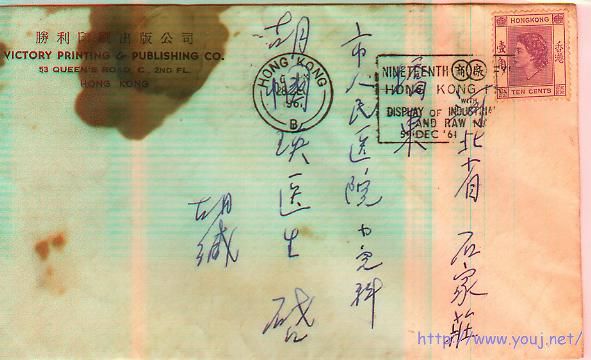 勝利印刷出版公司
VICTORY PRINTING & PUBLISHING CO.
53 QUEEN'S ROAD, C., 2ND FL.
HONG KONG
HONGKONG
香港
壹角
TEN CENTS
HONG KONG
B
NINETEENTH
HONG KONG
WITH
DISPLAY OF INDUSTRIAL
AND RAW
DEC '61
河北省 石家莊
市人民医院 内完科
胡 瑛 医生 啟
胡缄
http://www.youj.net/